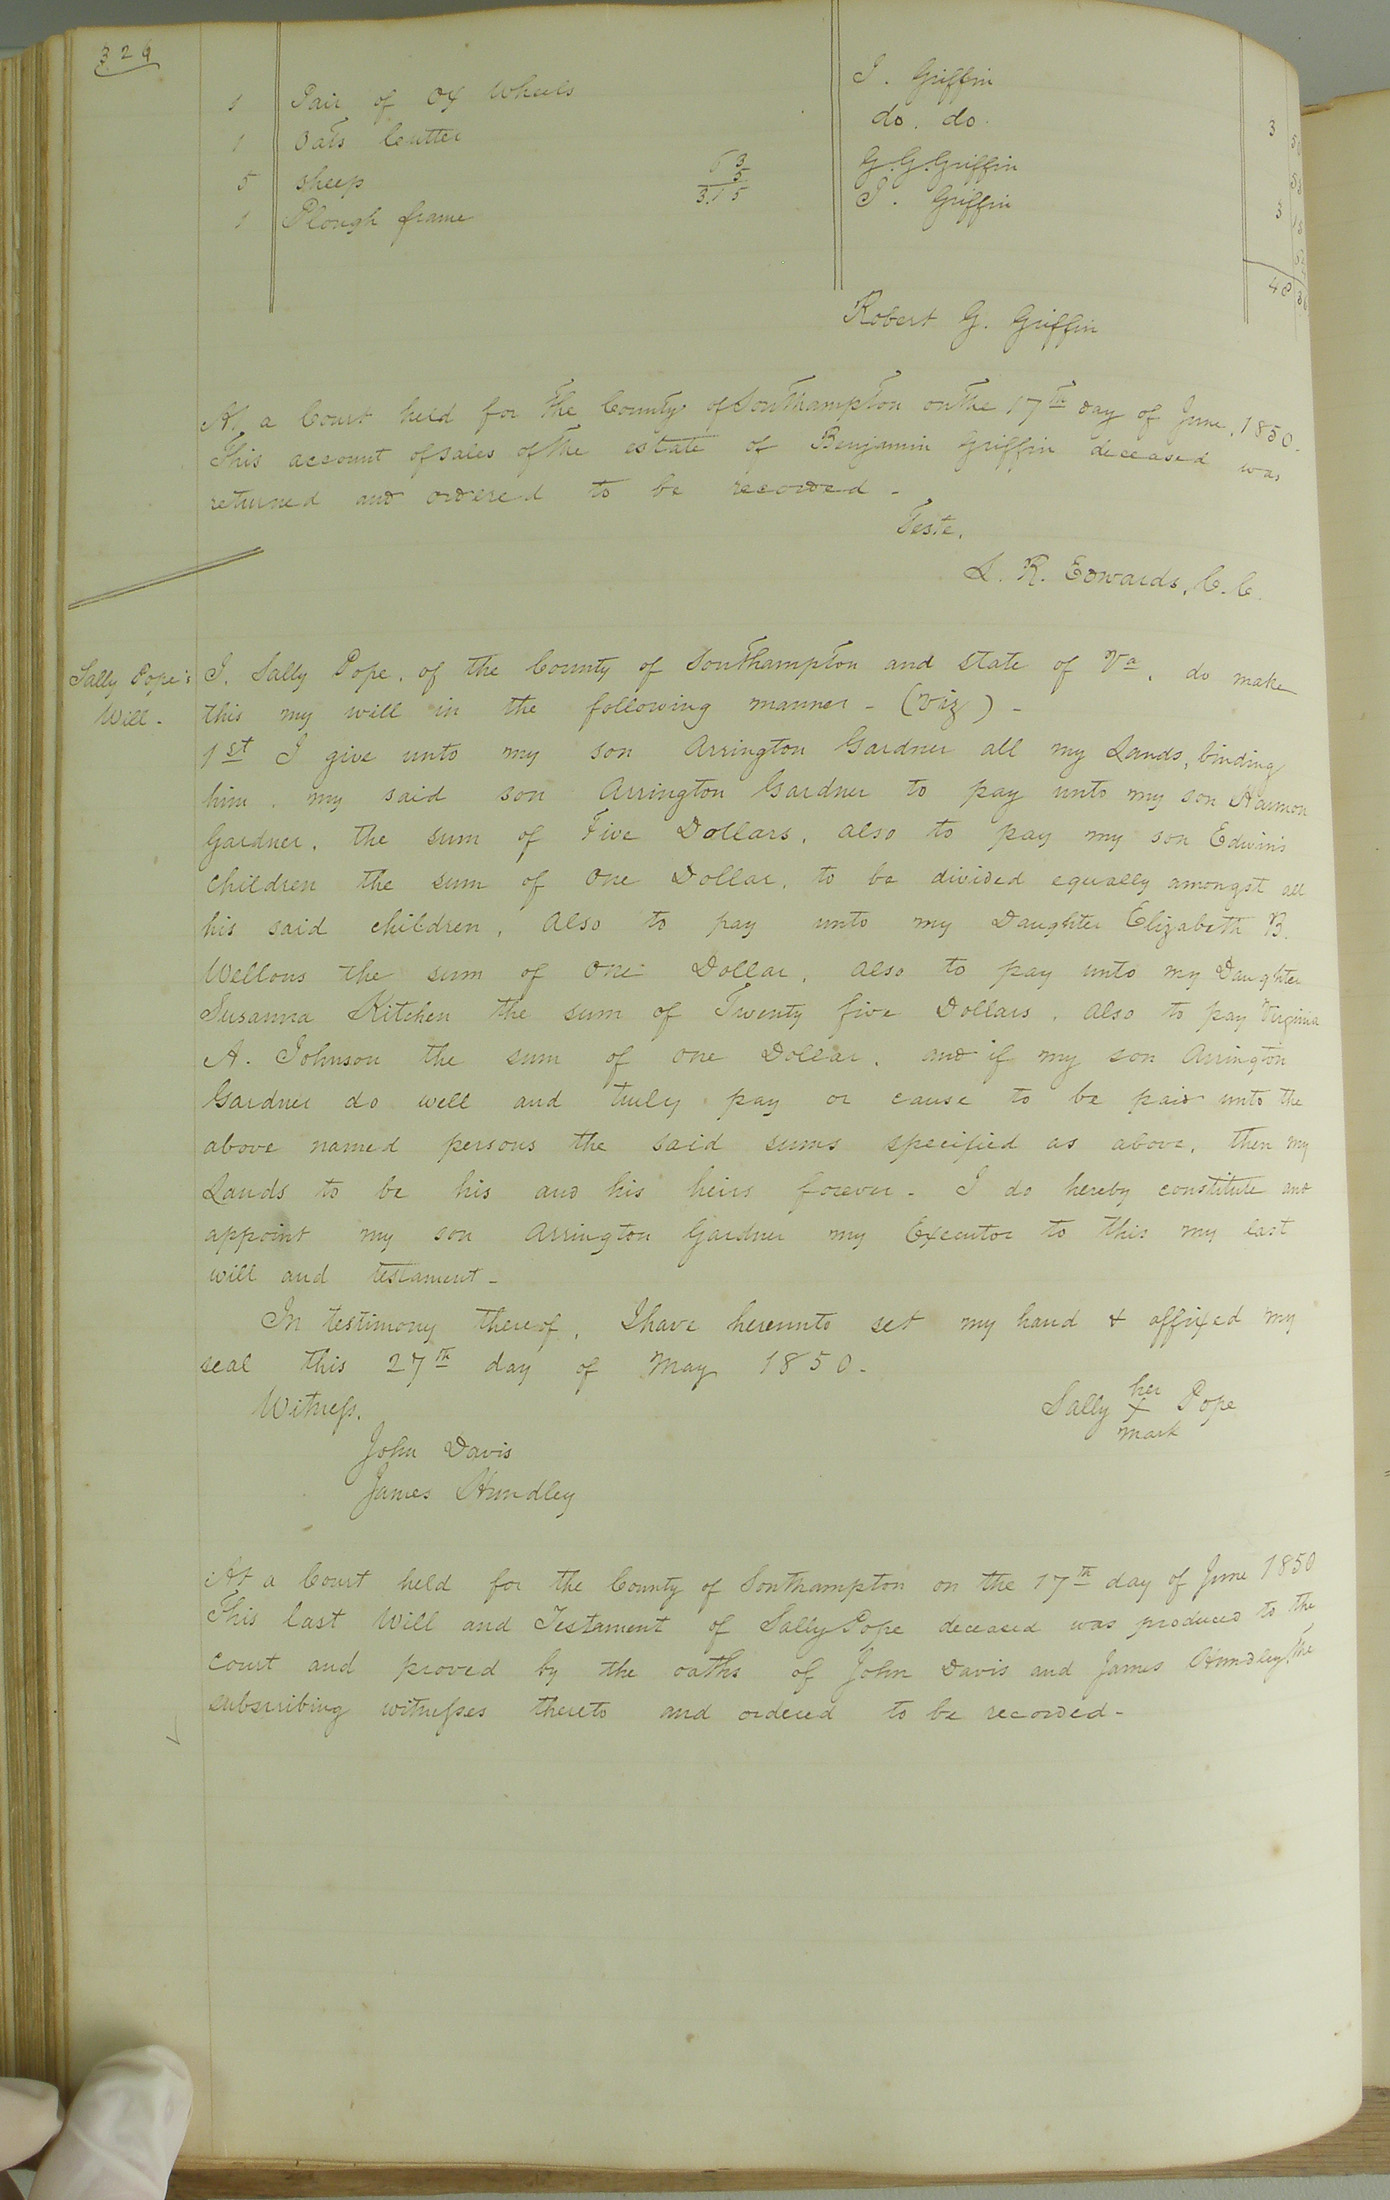 326
1 Pair of Ox Wheels J. Griffin 3 50
1 Oats Cutter do. do. 50
5 sheep 63 G. G. Griffin 3 15
5
3.15
1 Plough frame J. Griffin
48
Robert G. Griffin
At a Court held for the County of Southampton on the 17th day of June, 1850.
This account of sales of the estate of Benjamin Griffin deceased was
returned and ordered to be recorded -
Teste.
L. R. Edwards, C. C.
Sally Pope's
Will -
I, Sally Pope, of the County of Southampton and state of Va, do make
this my will in the following manner - (viz) -
1st I give unto my son Arrington Gardner all my Lands, binding
him, my said son Arrington Gardner to pay unto my son Harmon
Gardner, the sum of Five Dollars, also to pay my son Edwin's
children the sum of One Dollar, to be divided equally amongst all
his said children, also to pay unto my Daughter Elizabeth B.
Wellons the sum of One Dollar, also to pay unto my Daughter
Susanna Kitchen the sum of Twenty five Dollars, also to pay Virginia
A. Johnson the sum of one Dollar, and if my son Arrington
Gardner do well and truly pay or cause to be paid unto the
above named persons the said sums specified as above, then my
Lands to be his and his heirs forever - I do hereby constitute and
appoint my son Arrington Gardner my Executor to this my last
will and testament -
In testimony thereof, I have hereunto set my hand & affixed my
seal this 27th day of May 1850 -
Witness,
Sally her X mark Pope
John Davis
James Hundley
At a Court held for the County of Southampton on the 17th day of June 1850
This last Will and Testament of Sally Pope deceased was produced to the
court and proved by the oaths of John Davis and James Hundley the
subscribing witnesses thereto and ordered to be recorded -